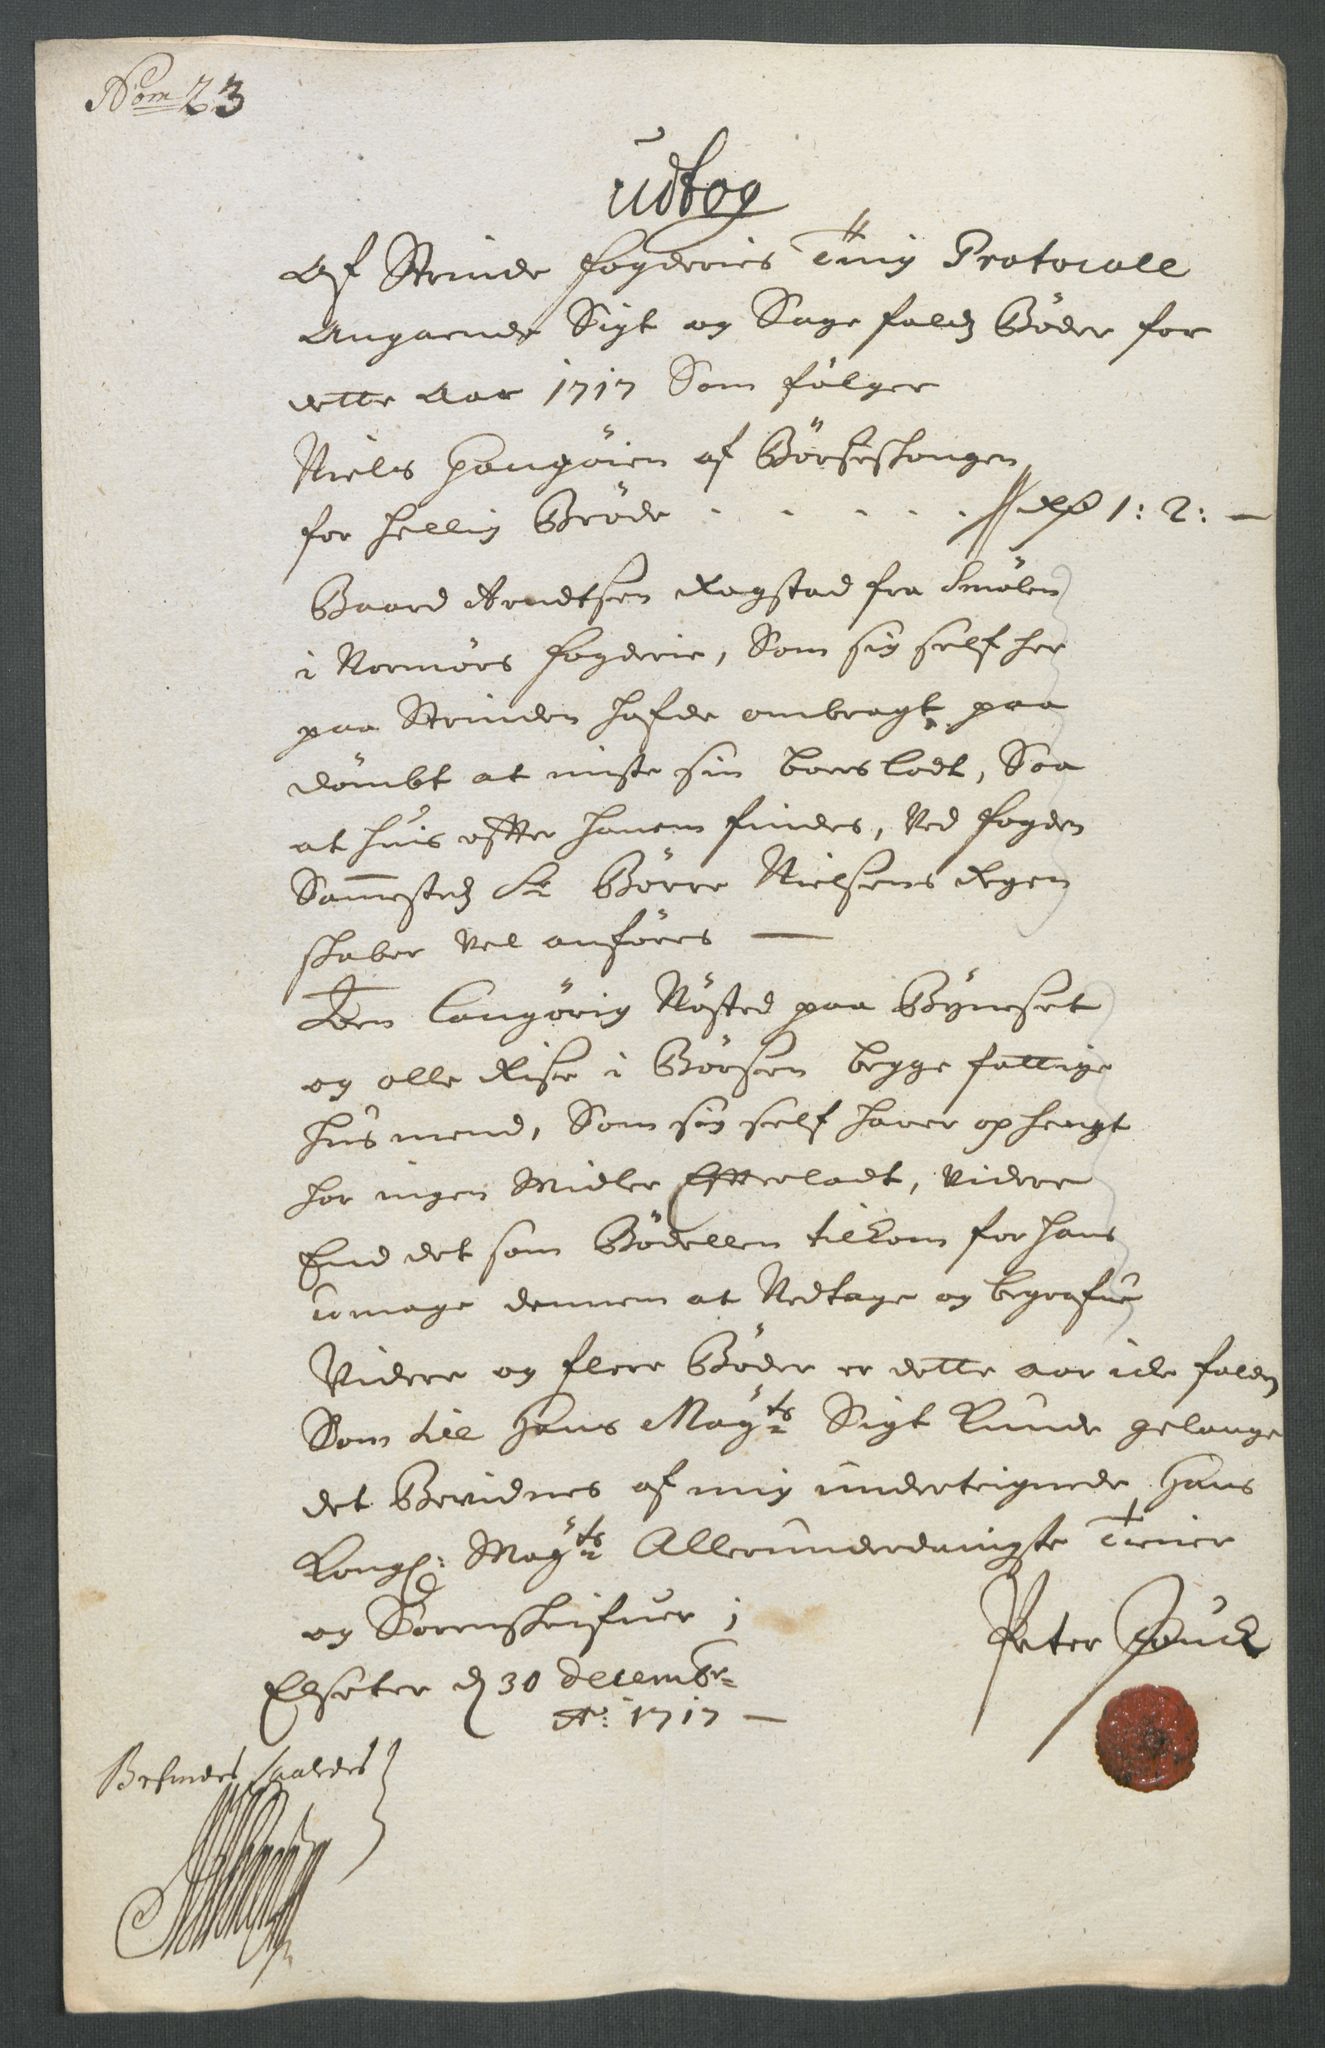 Nom 23
Udtog
Af Strinde fogderies Ting Protocall
Angaaende Sigt og Sagefalds Bøder for
dette Aar 1717 Som følger
Niels Haugøien af Børseschougen
for hellig Brøde . . . . . . Rd 1: 2: —
Baard Arndtsen Rogstad fra Smølen
i Normørs fogderie, Som sig self her
paa Strinden hafde ombragt, paa
dømbt at miste sin boeslodt, Saa
at huis efter hanem findes, Ved fogden
Sammesteds Sr Børre Nielsens Regen
skaber vel anføres —
Den Langørig Røsted paa Bÿneset
og olle Rise i Børsen begge fattige
husmend, Som sig self haver ophengt
har ingen Midler Efterladt, videre
End det som Bødellen tilkom for hans
umage dennem at Nedtage og begrafue
Videre og flere Bøder er dette aar icke falden
Som til Hans Mayts Sigt kunde gelange
det Bevidnes af mig underteignede Hans
Kongl: Mayts Allerunderdanigste Tiener
og Sorenskrifuer ;
Peter Juul
Elseter d 30 decembr
Ao: 1717 —
Befindes saaledes